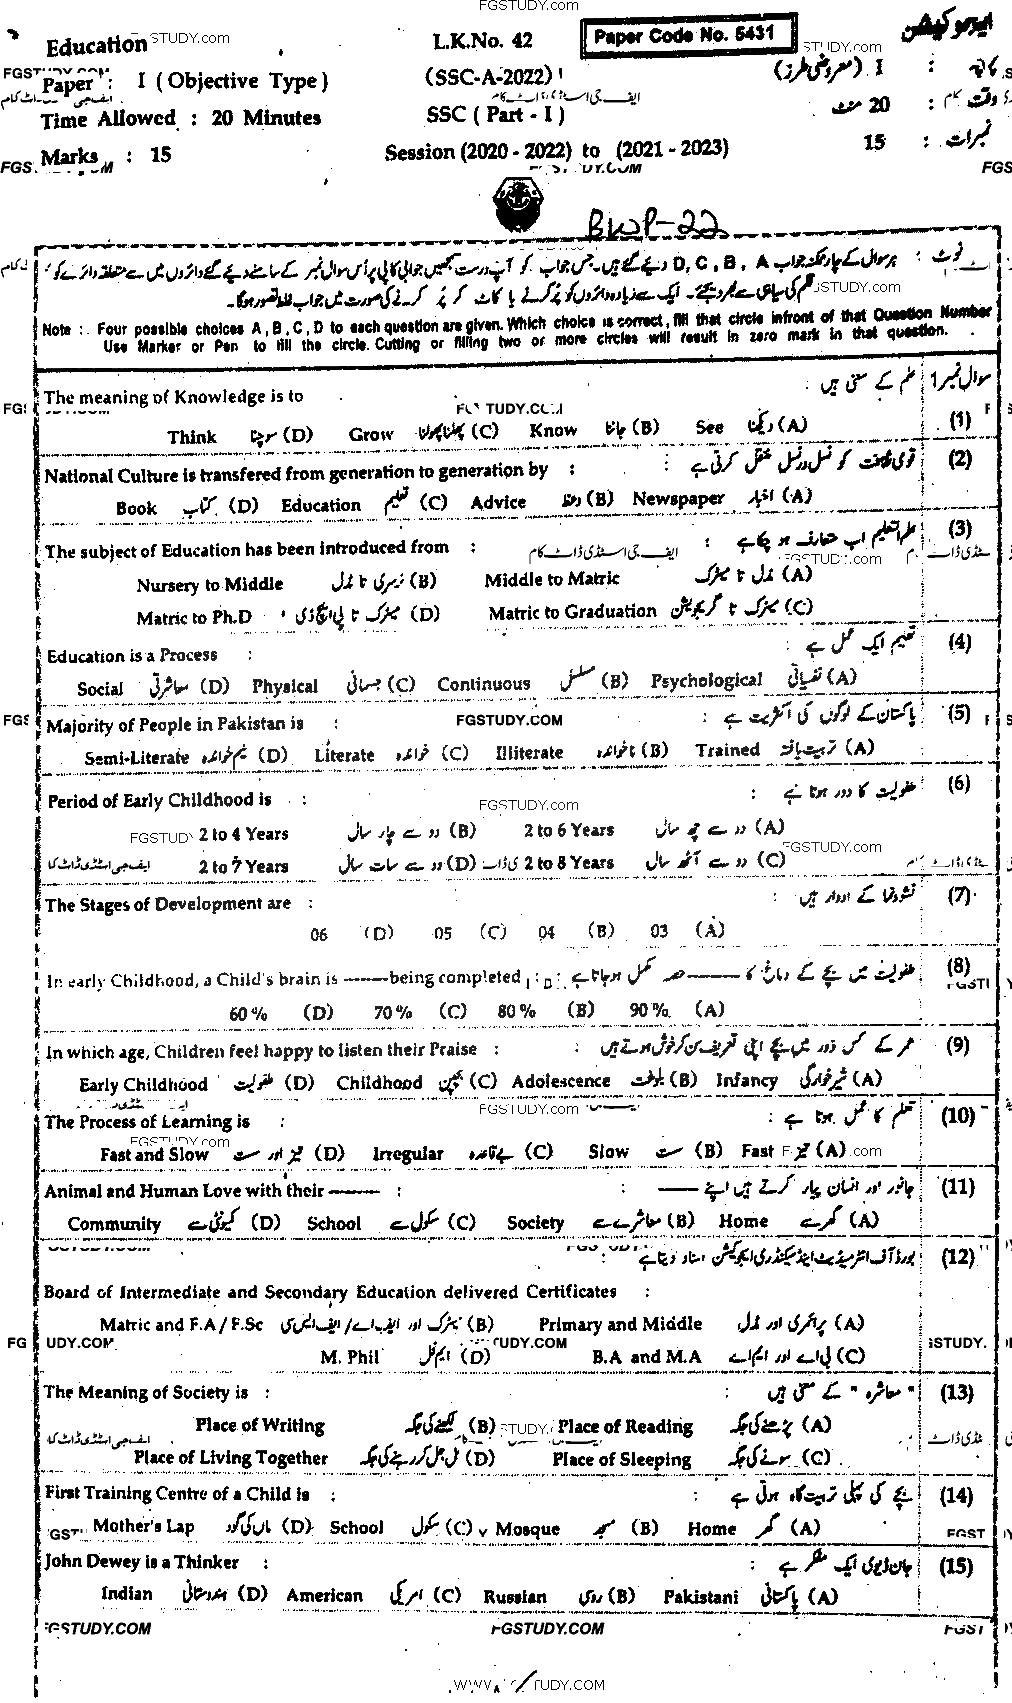 FGSTUDY.com
Education
L.K.No. 42
Paper Code No. 5431
ایجوکیشن
Paper : I ( Objective Type )
(SSC-A-2022)
I (معروضی طرز) : پرچہ
Time Allowed : 20 Minutes
SSC ( Part - I )
وقت : 20 منٹ
Marks : 15
Session (2020 - 2022) to (2021 - 2023)
نمبرات : 15
BWP-22
نوٹ : ہر سوال کے چار ممکنہ جواب A ، B ، C ، D دیے گئے ہیں۔ جس جواب کو آپ درست سمجھیں جوابی کاپی پر اُس سوال نمبر کے سامنے دیے گئے دائروں میں سے متعلقہ دائرے کو
قلم کی سیاہی سے بھر دیجئے۔ ایک سے زیادہ دائروں کو پُر کرنے یا کاٹ کر پُر کرنے کی صورت میں جواب غلط تصور ہوگا۔
Note : Four possible choices A , B , C , D to each question are given. Which choice is correct, fill that circle infront of that Question Number
Use Marker or Pen to fill the circle. Cutting or filling two or more circles will result in zero mark in that question.
سوال نمبر 1
علم کے معنی ہیں :
The meaning of Knowledge is to
(1)
Think سوچنا (D) Grow پھلنا پھولنا (C) Know جاننا (B) See دیکھنا (A)
قومی ثقافت کو نسل در نسل منتقل کرتی ہے (2)
National Culture is transfered from generation to generation by :
Book کتاب (D) Education تعلیم (C) Advice وعظ (B) Newspaper اخبار (A)
علم التعلیم اب متعارف ہو چکا ہے : (3)
The subject of Education has been introduced from :
Nursery to Middle نرسری تا مڈل (B) Middle to Matric مڈل تا میٹرک (A)
Matric to Ph.D میٹرک تا پی ایچ ڈی (D) Matric to Graduation میٹرک تا گریجویشن (C)
تعلیم ایک عمل ہے : (4)
Education is a Process :
Social معاشرتی (D) Physical جسمانی (C) Continuous مسلسل (B) Psychological نفسیاتی (A)
پاکستان کے لوگوں کی اکثریت ہے : (5)
Majority of People in Pakistan is :
FGSTUDY.COM
Semi-Literate نیم خواندہ (D) Literate خواندہ (C) Illiterate ناخواندہ (B) Trained تربیت یافتہ (A)
طفولیت کا دور ہوتا ہے : (6)
Period of Early Childhood is :
FGSTUDY.com
2 to 4 Years دو سے چار سال (B) 2 to 6 Years دو سے چھ سال (A)
FGSTUDY.com
2 to 7 Years دو سے سات سال (D) 2 to 8 Years دو سے آٹھ سال (C)
نشوونما کے ادوار ہیں : (7)
The Stages of Development are :
06 (D) 05 (C) 04 (B) 03 (A)
طفولیت میں بچے کے دماغ کا ——— حصہ مکمل ہو جاتا ہے (8)
In early Childhood, a Child's brain is ——being completed
60% (D) 70% (C) 80% (B) 90% (A)
عمر کے کس دور میں بچے اپنی تعریف سن کر خوش ہوتے ہیں : (9)
In which age, Children feel happy to listen their Praise :
Early Childhood طفولیت (D) Childhood بچپن (C) Adolescence بلوغت (B) Infancy شیرخوارگی (A)
FGSTUDY.com
تعلم کا عمل ہوتا ہے : (10)
The Process of Learning is :
FGSTUDY.com
Fast and Slow تیز اور ست (D) Irregular بے قاعدہ (C) Slow ست (B) Fast تیز (A)
جانور اور انسان پیار کرتے ہیں اپنے —— : (11)
Animal and Human Love with their —— :
Community کمیونٹی سے (D) School سکول سے (C) Society معاشرے سے (B) Home گھر سے (A)
بورڈ آف انٹرمیڈیٹ اینڈ سیکنڈری ایجوکیشن اسناد دیتا ہے : (12)
Board of Intermediate and Secondary Education delivered Certificates :
Matric and F.A / F.Sc میٹرک اور ایف اے / ایف ایس سی (B) Primary and Middle پرائمری اور مڈل (A)
M. Phil ایم فل (D) B.A and M.A بی اے اور ایم اے (C)
"معاشرہ" کے معنی ہیں : (13)
The Meaning of Society is :
Place of Writing لکھنے کی جگہ (B) Place of Reading پڑھنے کی جگہ (A)
Place of Living Together مل جل کر رہنے کی جگہ (D) Place of Sleeping سونے کی جگہ (C)
بچے کی پہلی تربیت گاہ ہوتی ہے : (14)
First Training Centre of a Child is :
Mother's Lap ماں کی گود (D) School سکول (C) Mosque مسجد (B) Home گھر (A)
جان ڈیوی ایک مفکر ہے : (15)
John Dewey is a Thinker :
Indian ہندوستانی (D) American امریکی (C) Russian روسی (B) Pakistani پاکستانی (A)
FGSTUDY.COM